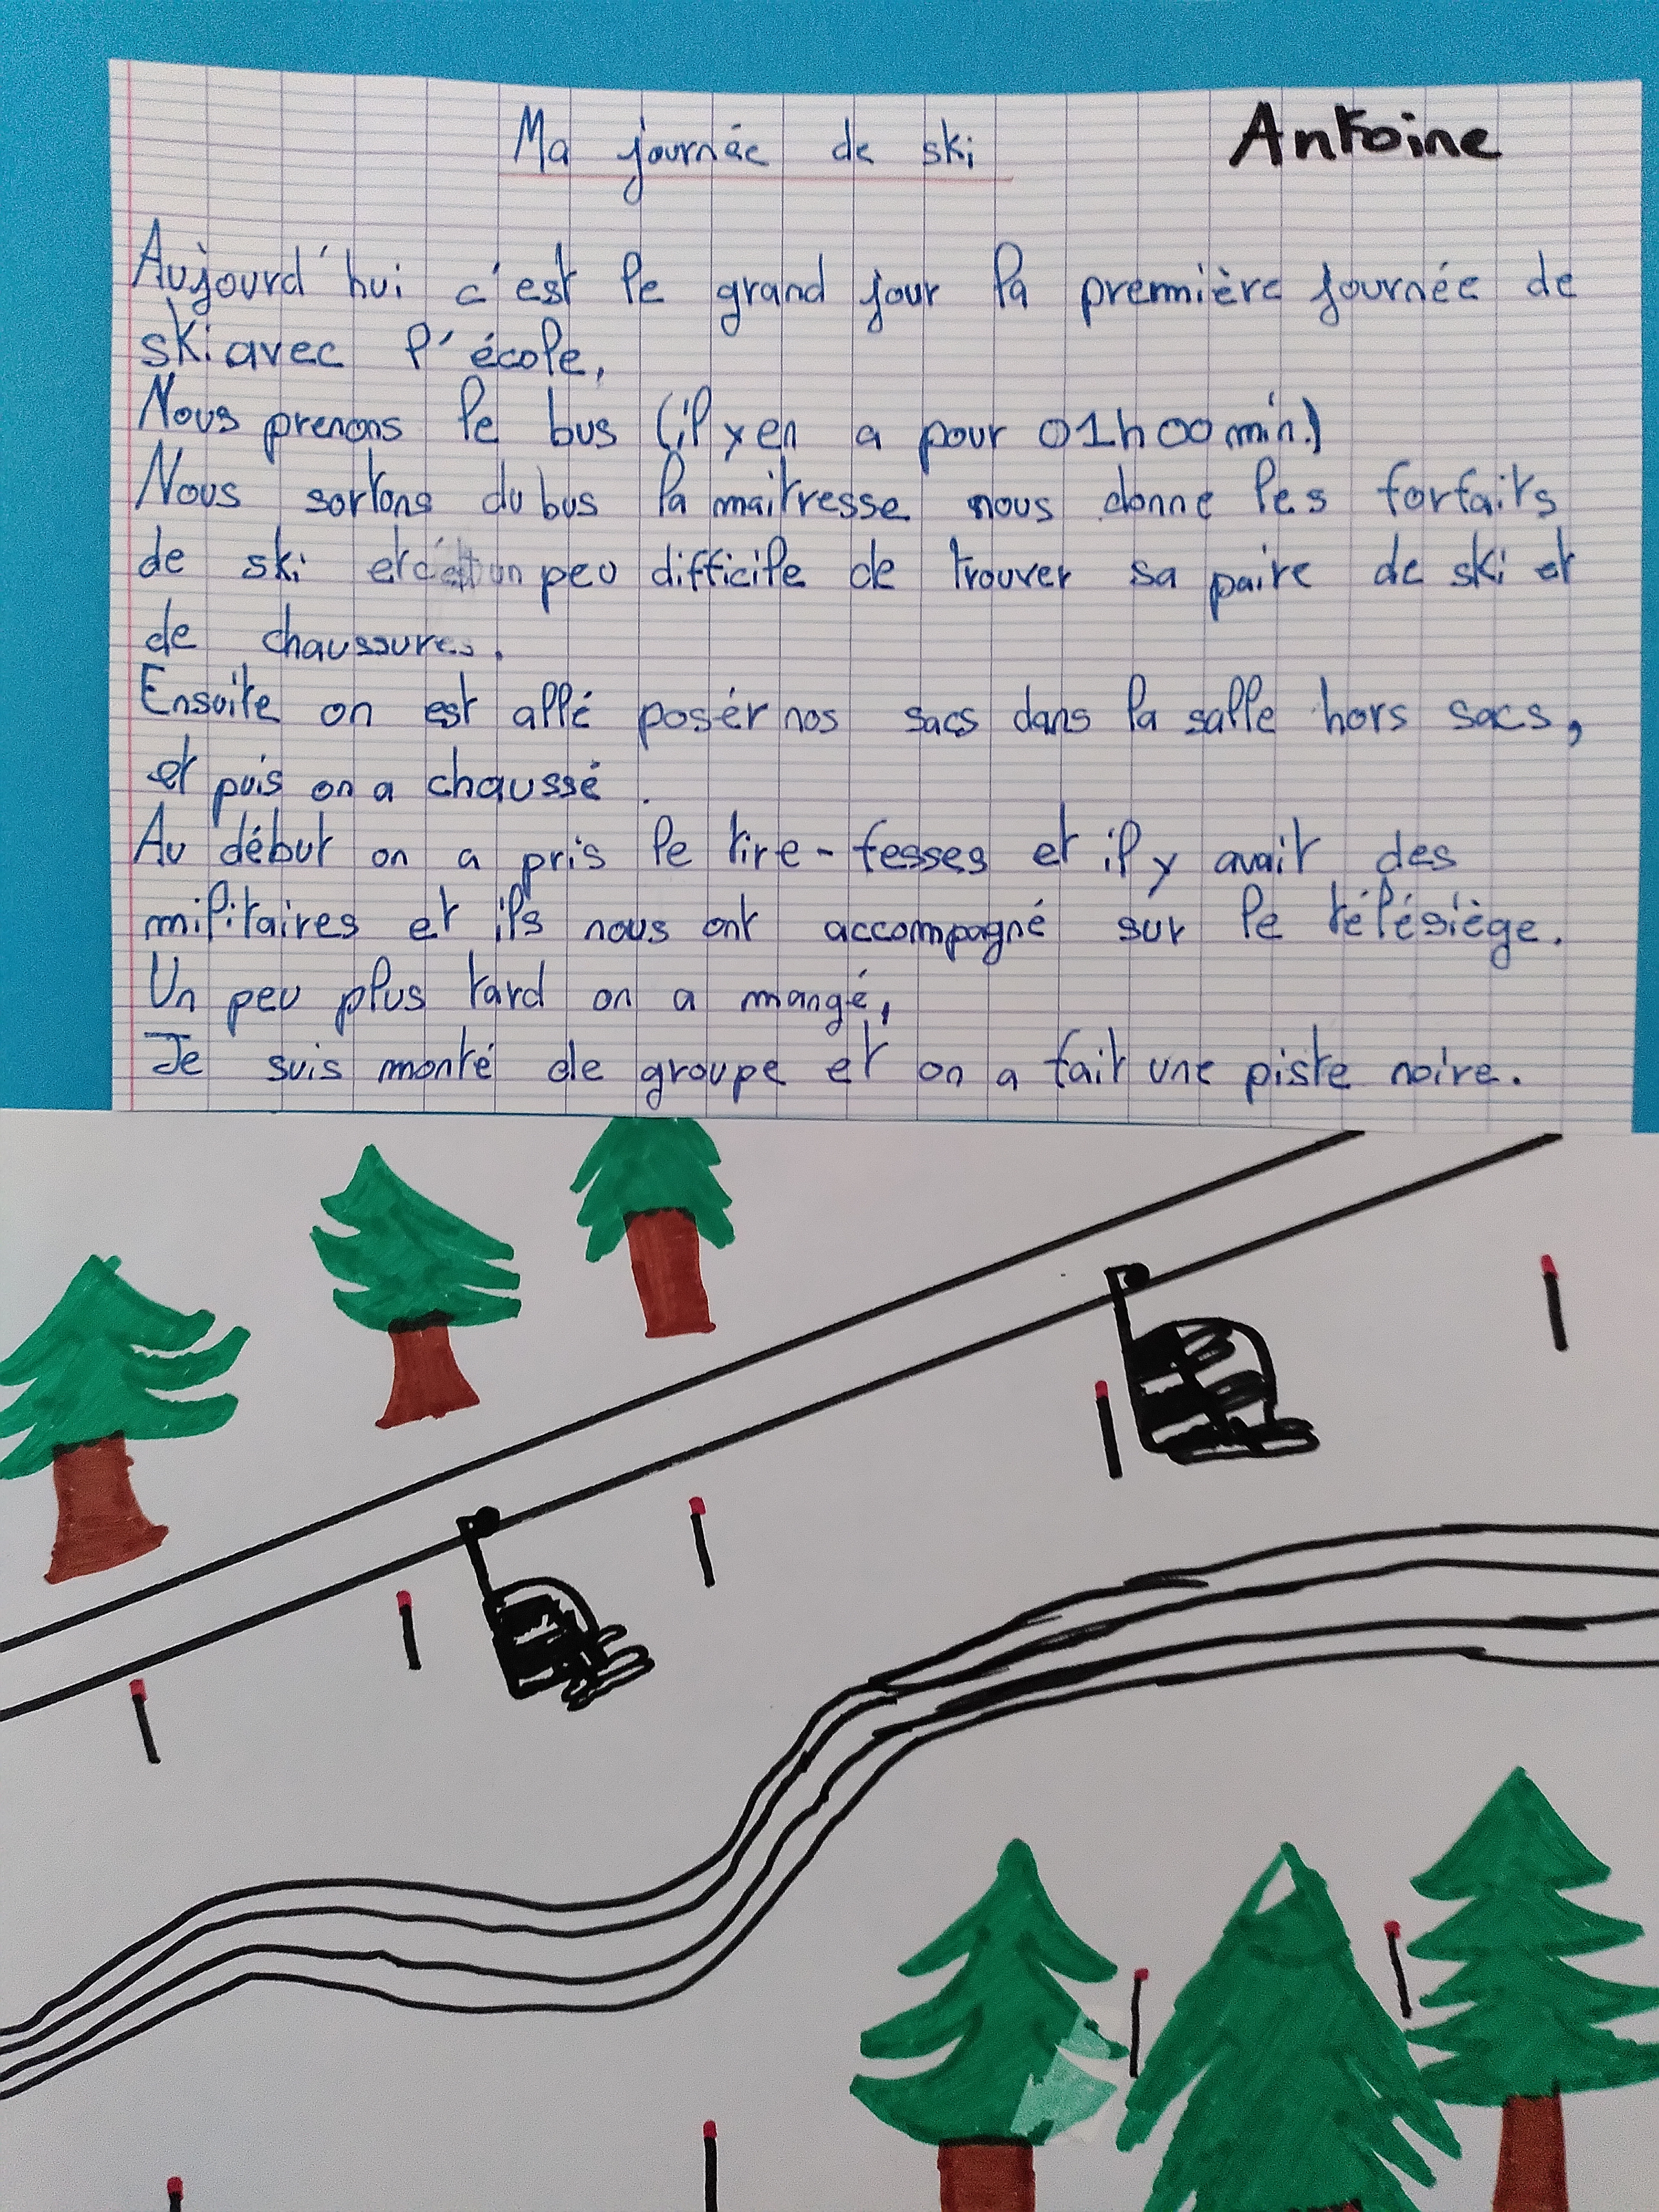 Ma journée de ski
Antoine
Aujourd'hui c'est le grand jour la première journée de
ski avec l'école,
Nous prenons le bus (il y en a pour 01h00min.)
Nous sortons du bus la maitresse nous donne les forfaits
de ski et c'est un peu difficile de trouver sa paire de ski et
de chaussures.
Ensuite on est allé posér nos sacs dans la salle hors sacs,
et puis on a chaussé.
Au début on a pris le tire-fesses et il y avait des
militaires et ils nous ont accompagné sur le télésiège.
Un peu plus tard on a mangé,
Je suis monté de groupe et on a fait une piste noire.